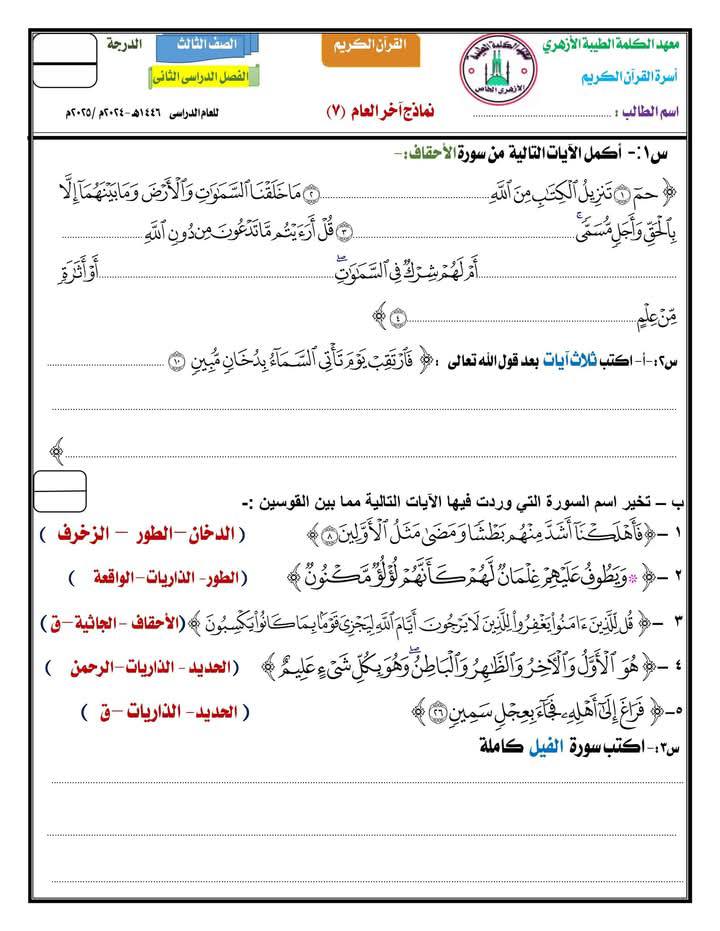 معهد الكلمة الطيبة الأزهري
القرآن الكريم
الصف الثالث
الدرجة
أسرة القرآن الكريم
الفصل الدراسى الثانى
اسم الطالب : ........................
نماذج آخر العام (٧)
للعام الدراسى ١٤٤٦هـ-٢٠٢٤م /٢٠٢٥م
معهد الكلمة الطيبة
الأزهرى الخاص
س١:- أكمل الآيات التالية من سورة الأحقاف:-
﴿ حمٓ ١ تَنزِيلُ ٱلۡكِتَٰبِ مِنَ ٱللَّهِ ........................ ٢ مَا خَلَقۡنَا ٱلسَّمَٰوَٰتِ وَٱلۡأَرۡضَ وَمَا بَيۡنَهُمَآ إِلَّا
بِٱلۡحَقِّ وَأَجَلٖ مُّسَمّٗىۚ ........................ ٣ قُلۡ أَرَءَيۡتُم مَّا تَدۡعُونَ مِن دُونِ ٱللَّهِ ........................
........................ أَمۡ لَهُمۡ شِرۡكٞ فِي ٱلسَّمَٰوَٰتِۖ ........................ أَوۡ أَثَٰرَةٖ
مِّنۡ عِلۡمٍ ........................ ٤ ﴾
س٢:-أ- اكتب ثلاث آيات بعد قول الله تعالى :﴿ فَٱرۡتَقِبۡ يَوۡمَ تَأۡتِي ٱلسَّمَآءُ بِدُخَانٖ مُّبِينٖ ١٠ ........................
........................
........................ ﴾
ب – تخير اسم السورة التي وردت فيها الآيات التالية مما بين القوسين :-
١ -﴿ فَأَهۡلَكۡنَآ أَشَدَّ مِنۡهُم بَطۡشٗا وَمَضَىٰ مَثَلُ ٱلۡأَوَّلِينَ ٨ ﴾ ( الدخان –الطور – الزخرف )
٢ -﴿ ۞ وَيَطُوفُ عَلَيۡهِمۡ غِلۡمَانٞ لَّهُمۡ كَأَنَّهُمۡ لُؤۡلُؤٞ مَّكۡنُونٞ ﴾ (الطور- الذاريات-الواقعة )
٣ -﴿ قُل لِّلَّذِينَ ءَامَنُواْ يَغۡفِرُواْ لِلَّذِينَ لَا يَرۡجُونَ أَيَّامَ ٱللَّهِ لِيَجۡزِيَ قَوۡمَۢا بِمَا كَانُواْ يَكۡسِبُونَ ﴾ (الأحقاف -الجاثية-ق )
٤ -﴿ هُوَ ٱلۡأَوَّلُ وَٱلۡأٓخِرُ وَٱلظَّٰهِرُ وَٱلۡبَاطِنُۖ وَهُوَ بِكُلِّ شَيۡءٍ عَلِيمٌ ﴾ (الحديد - الذاريات-الرحمن )
٥-﴿ فَرَاغَ إِلَىٰٓ أَهۡلِهِۦ فَجَآءَ بِعِجۡلٖ سَمِينٖ ٢٦ ﴾ ( الحديد- الذاريات –ق )
س٣:-اكتب سورة الفيل كاملة
........................
........................
........................